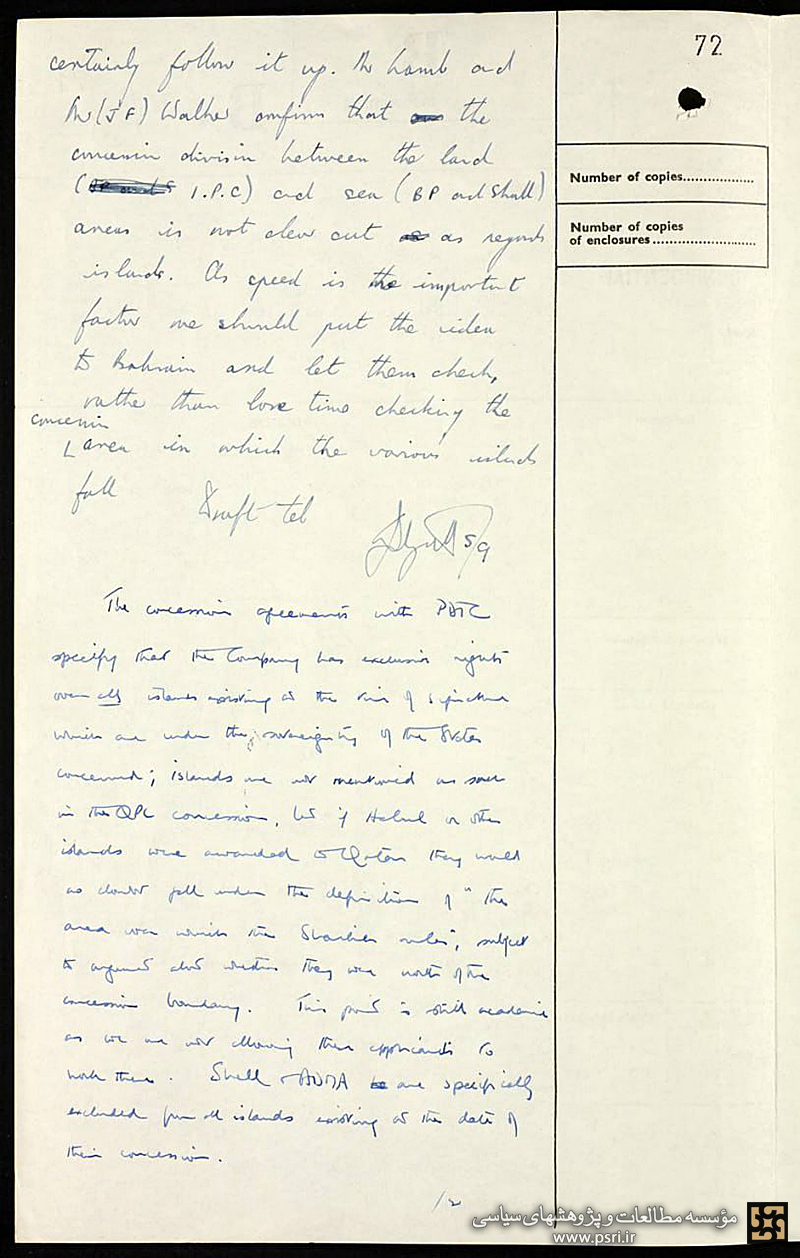 72
certainly follow it up. Mr Lamb and
Mr (J F) Walker confirm that the
concession division between the land
( I.P.C) and sea (BP and Shell)
areas is not clear cut as regards
islands. As speed is the important
factor we should put the idea
to Bahrain and let them check,
rather than lose time checking the
concession
area in which the various islands
fall
Draft tel
5/9
The concession agreements with PDTC
specify that the Company has exclusive rights
over all islands existing at the time of signature
which are under the sovereignty of the States
concerned; islands are not mentioned as such
in the QPC concession, but if Halul or other
islands were awarded to Qatar they would
no doubt fall under the definition of "the
area over which the Shaikh rules", subject
to argument about whether they were north of the
concession boundary. This point is still academic
as we are not allowing these applicants to
work there. Shell & ADMA are specifically
excluded from all islands existing at the date of
their concession.
/2
Number of copies
Number of copies
of enclosures
مؤسسه مطالعات و پژوهشهای سیاسی
www.psri.ir